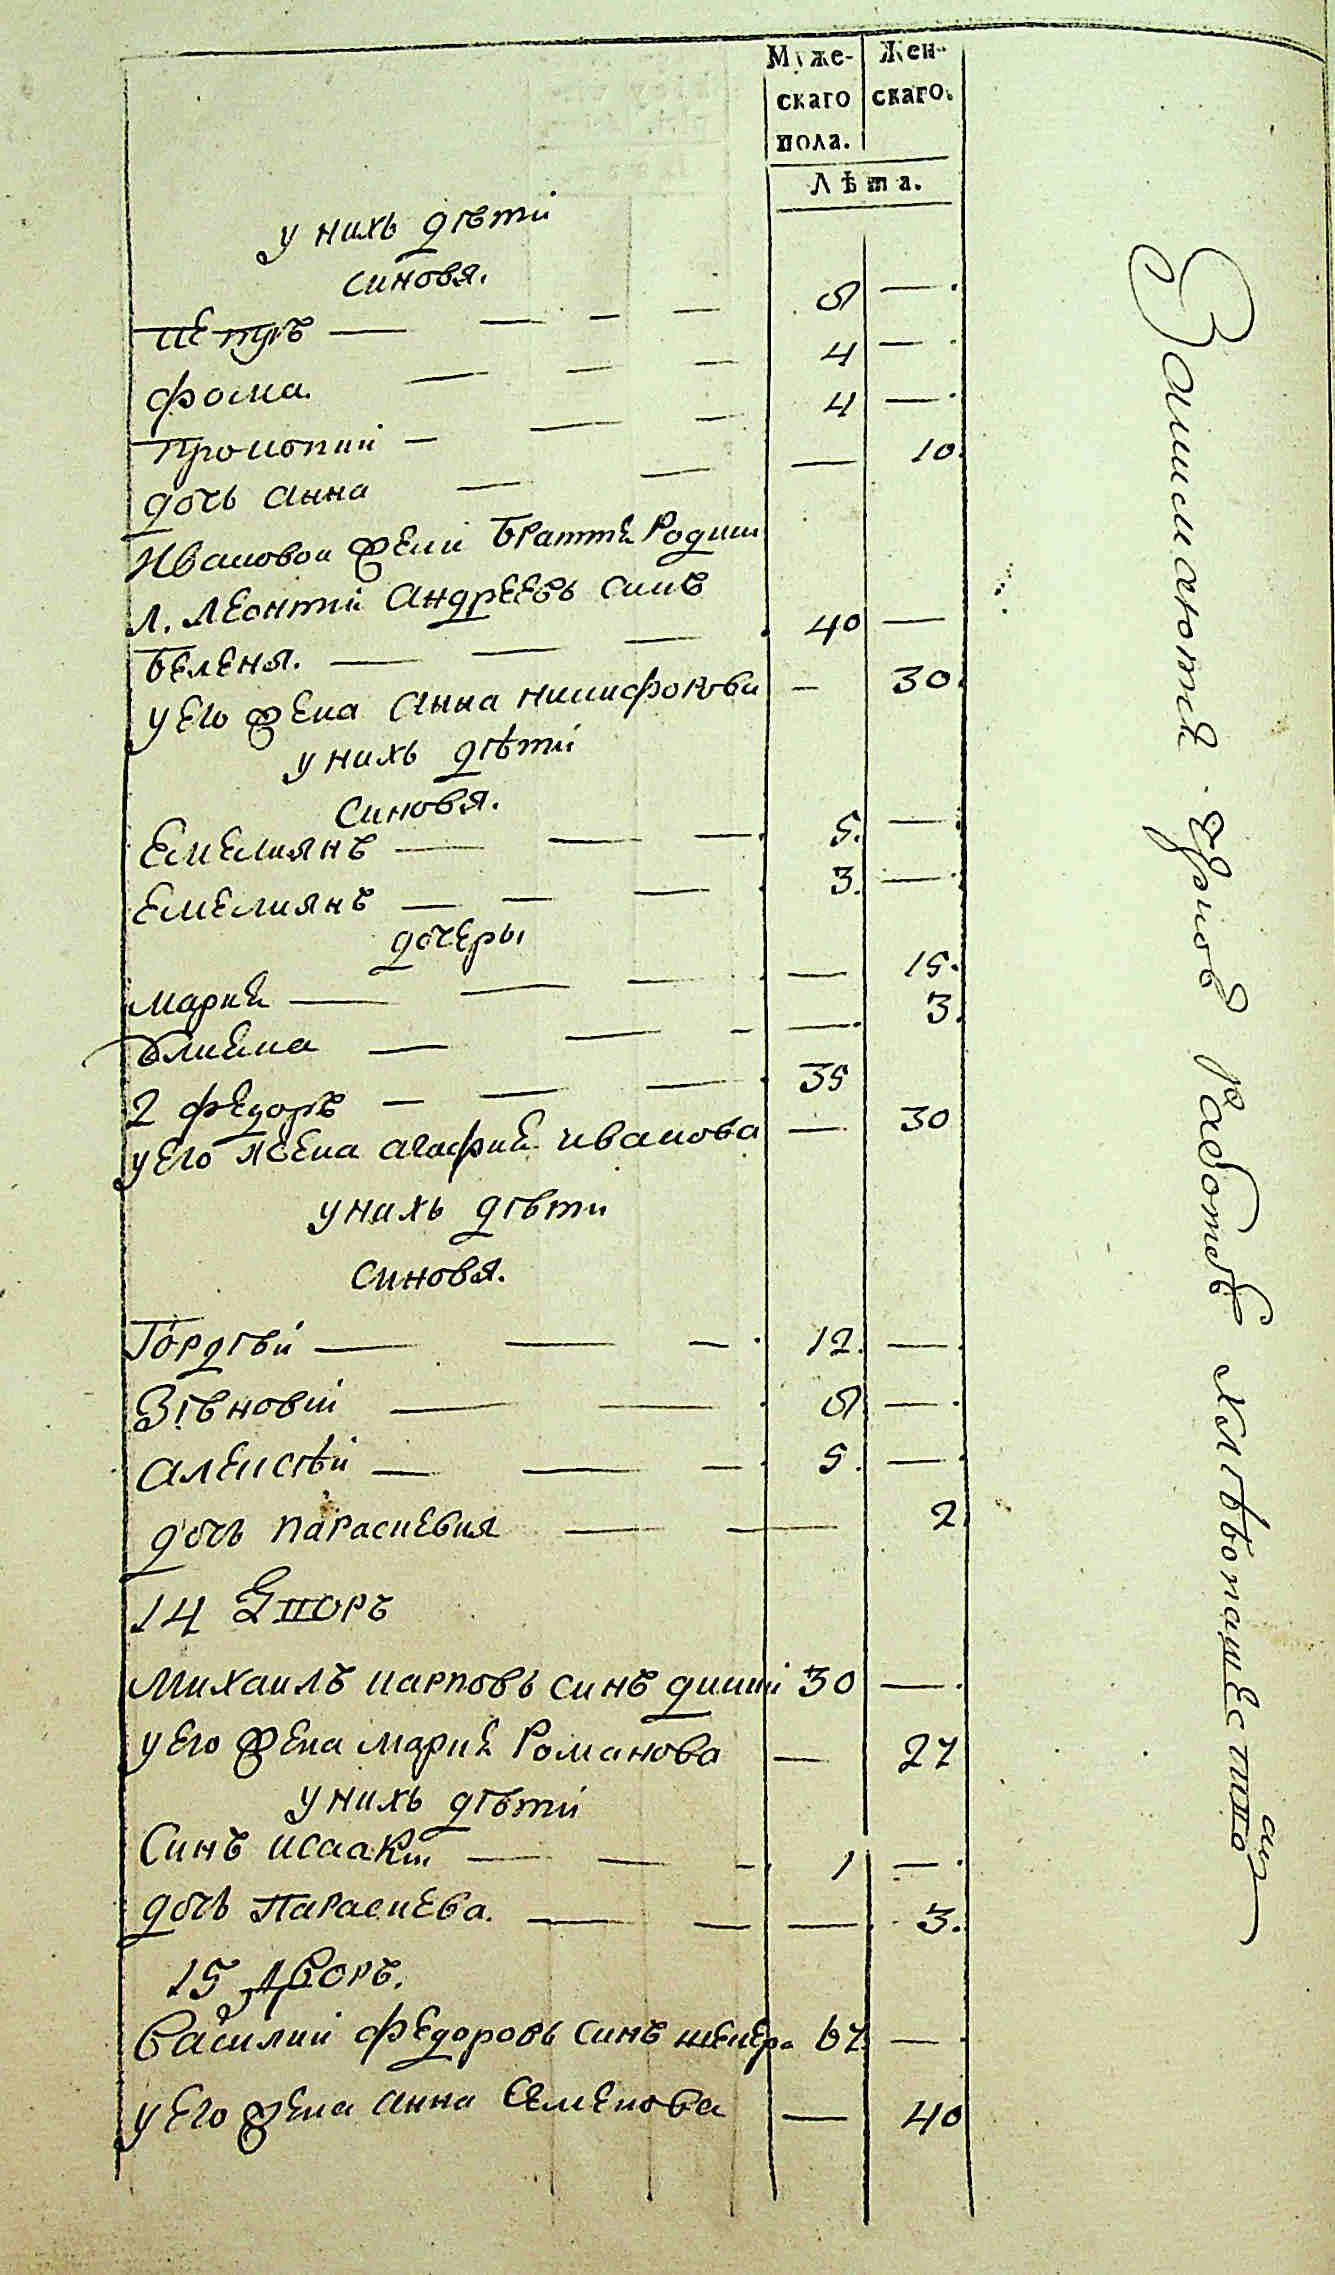 Муже-
скаго
пола.
Жен-
скаго.
Лѣта.
у нихъ дѣти
синовя.
Петръ 8
фома 4
Прокопий 4
дочь анна 10.
Ивановой жени братте Родни
1. Леонтий андреевъ синъ
белена. 40
у его жена анна никифорова 30.
у нихъ дѣти
синовя.
Емелиянъ 5.
Емелиянъ 3.
дочеры
Марие 15.
3.
2 федоръ 35
у его жена агафие иванова 30
у нихъ дѣти
синовя.
Гордѣй 12.
Зѣновий 8
алексѣй 5.
дочь параскевия 2.
14 Дворъ
Михаилъ карповъ синъ дикий 30
у его жена марие Романова 27
у нихъ дѣти
Синъ исаакий 1
дочь Параскева. 3.
15 дворъ.
василий федоровъ синъ 67
у его жена анна семенова 40
работою хлѣбопашества